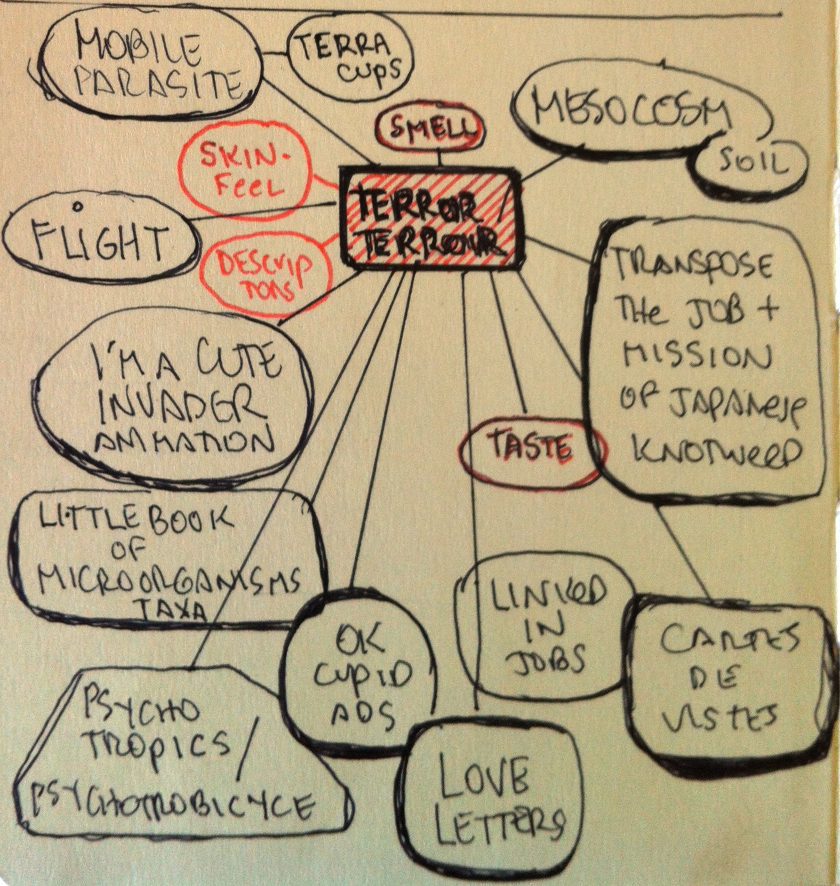 MOBILE
PARASITE
TERRA
CUPS
SMELL
MESOCOSM
SOIL
SKIN-
FEEL
TERROR
TERROIR
FLIGHT
DESCRIP
TORS
TRANSPOSE
THE JOB +
MISSION
OF JAPANESE
KNOTWEED
I'M A CUTE
INVADER
ANIMATION
TASTE
LITTLE BOOK
OF
MICROORGANISMS
TAXA
LINKED
IN
JOBS
OK
CUPID
ADS
CARTES
DE
VISTES
PSYCHO
TROPICS/
LOVE
LETTERS